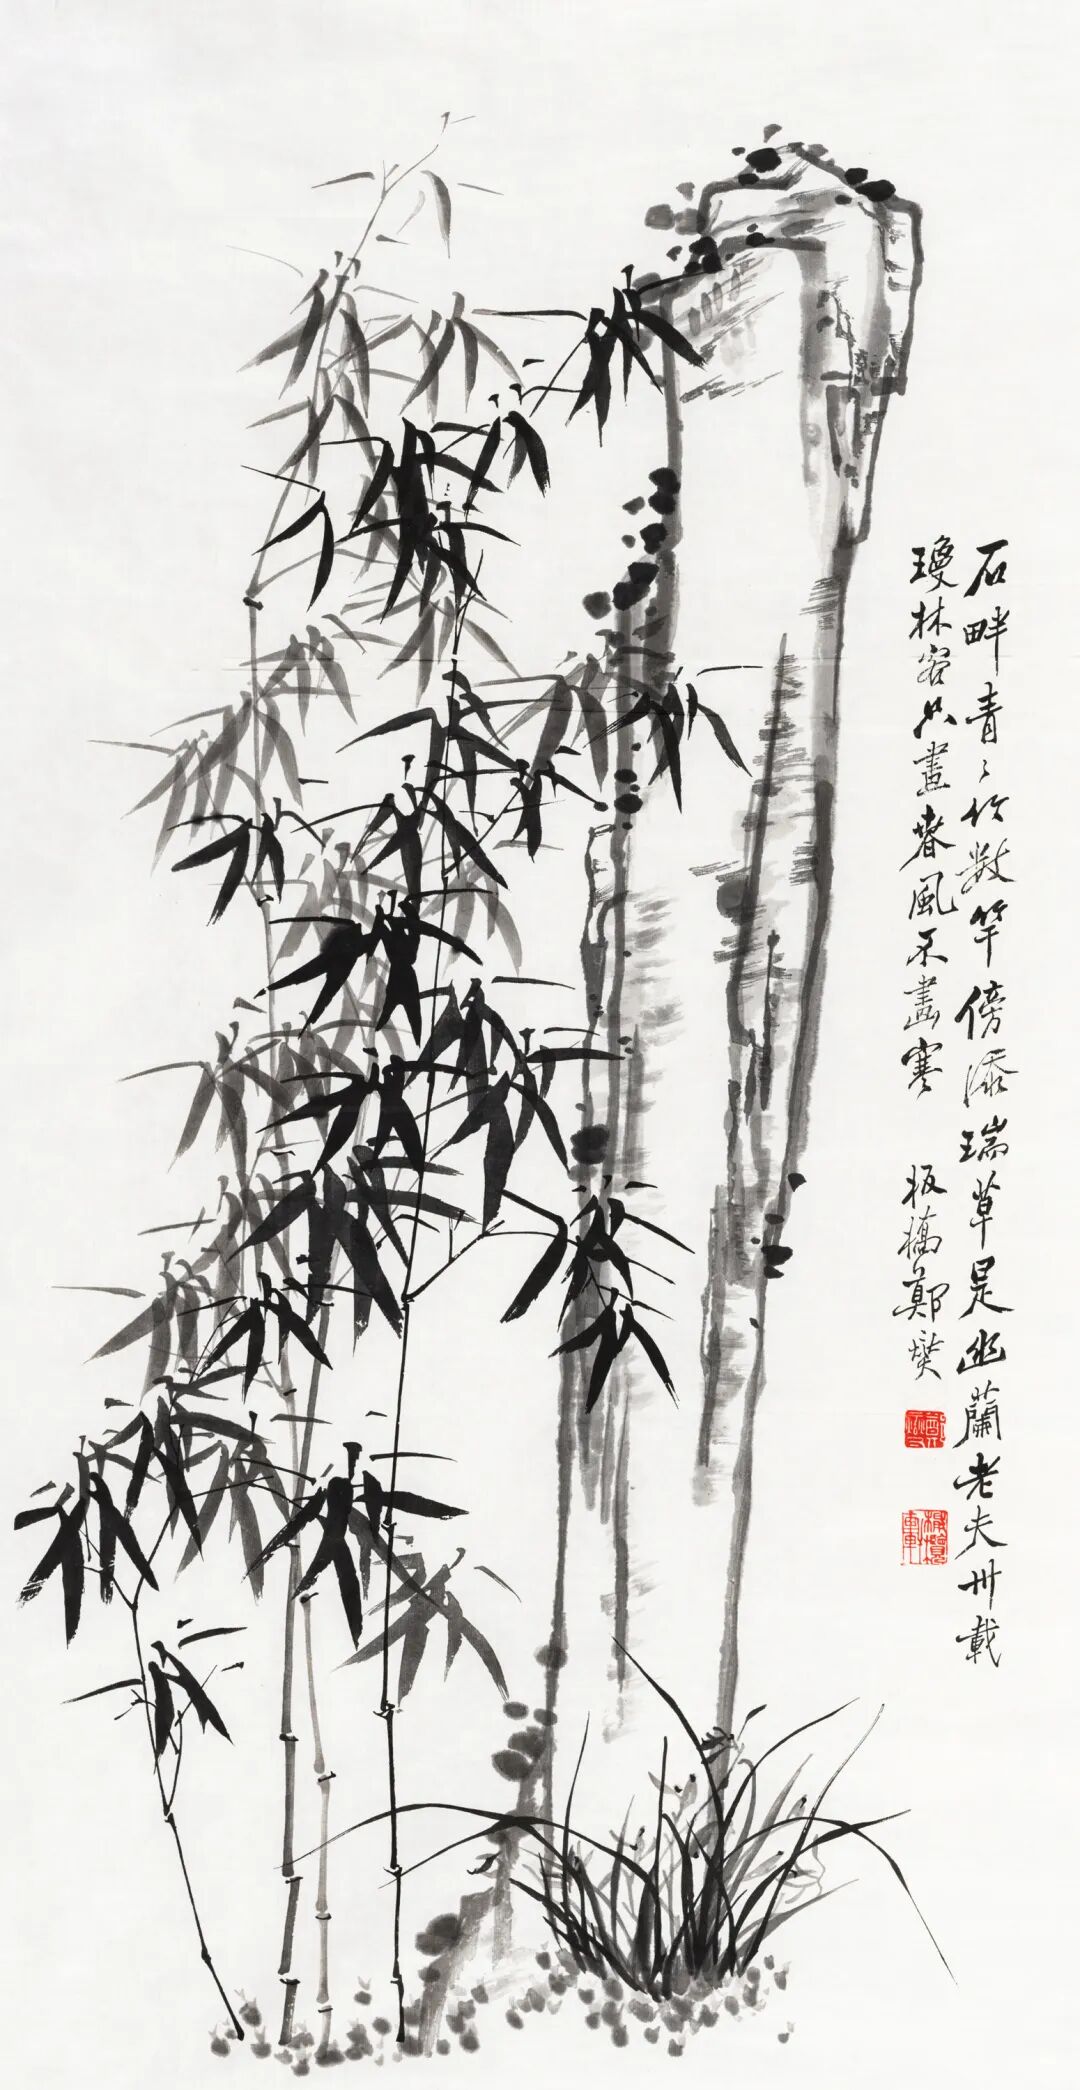 石畔青〻竹数竿傍添瑞草是幽蘭老夫卅載
瓊林客只畫春風不畫寒
板橋鄭燮
鄭燮